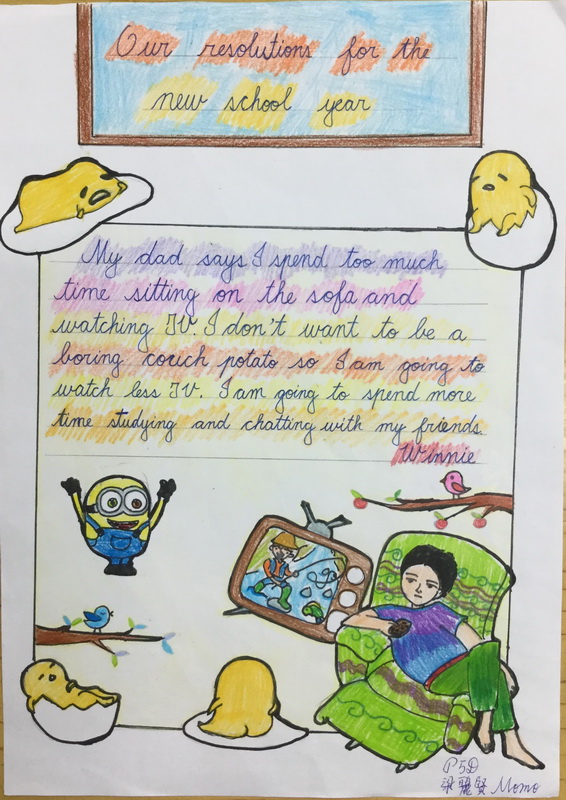 Our resolutions for the
new school year
My dad says I spend too much
time sitting on the sofa and
watching TV. I don't want to be a
boring couch potato so I am going to
watch less TV. I am going to spend more
time studying and chatting with my friends.
Winnie
P5D
梁麗賢 Momo